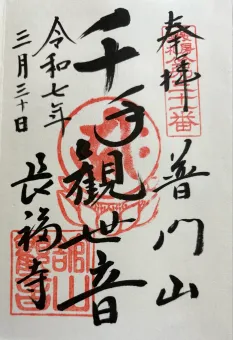 奉拝
普門山
千手観世音
長福寺
令和七年
三月三十日